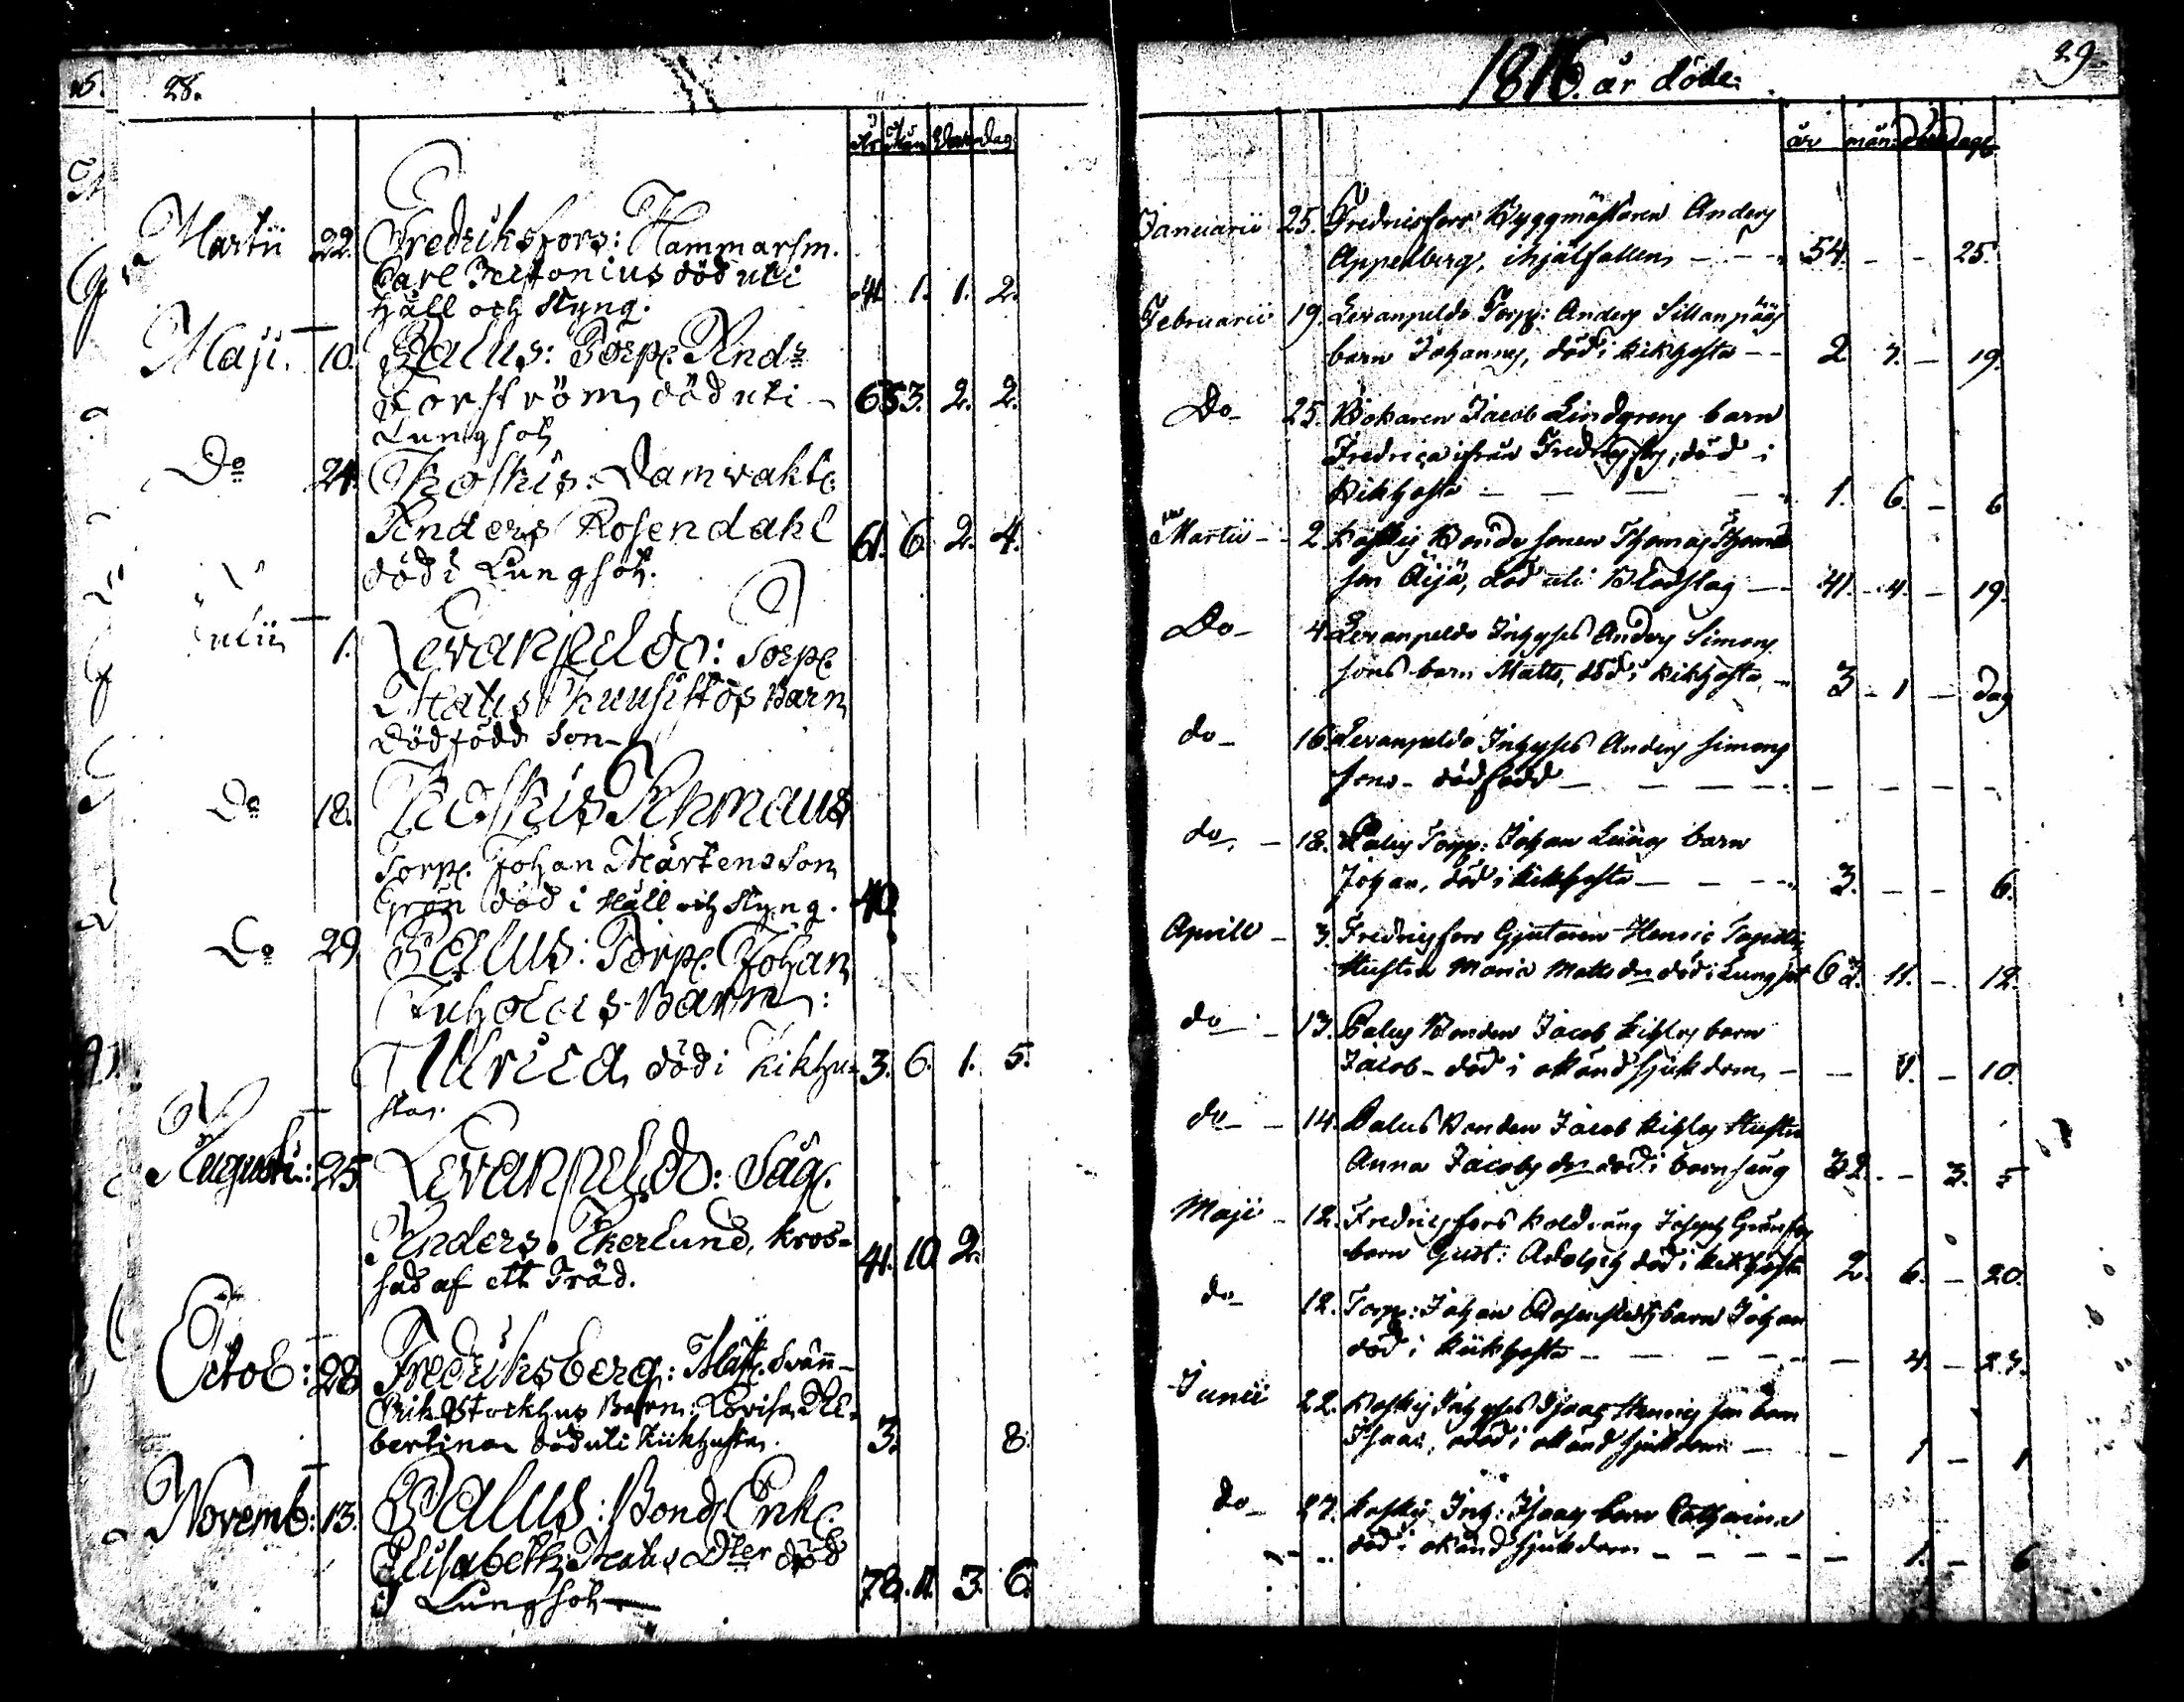 28.
År Mån Vek dag
Martii 22. Fredriksfors: Hammarsm.
Carl död uti
håll och styng. 41. 1. 1. 2.
Maji. 10. Palus: Torp. And:
Forström, död uti
Lungsot 65 3. 2. 2.
Do 24. Koskis: Damvakt:
Anders Rosendahl 61. 6. 2. 4.
död i Lungsot.
1. Levanpeldo: Torp.
Matts Kuusistos Barn
dödfödd Son
Do 18. Koskis
Torp. Johan Mårtensson
Grön död i Håll och styng. 40
Do 29 Palus: Torp. Johan
Barn:
Ulrica, död i Kikho- 3. 6. 1. 5.
sta.
Augusti: 25. Levanpeldo: Såg.
Anders Åkerlund, kros-
sad af ett Träd. 41. 10. 2.
Octob: 28 Fredriksberg: Mast. Svän-
Erik Stockhus Barn: Lovisa Al-
bertina död uti Kikhosta. 3. 8.
Novemb: 13. Palus: Bond. Enk.
Elisabeth Matts Dter död
I Lungsot 78. 11. 3. 6.
1816. år döde. 29
år mån: dagr
Januarii 25. Fredricsfors Byggmästaren Anders
Appelberg, ihjälfallen, 54. 25.
Februarii 19. Levanpeldo Torp: Anders Sillanpääs
barn Johannes, död i kikhosta 2 7. 19.
Do 25. Bokaren Jacob Lindgrens barn
Fredrica ifrån död i
Kikhosta 1. 6. 6
Martii 2. Koskis Bonde sonen Thomas Thomas
son Äijä, död uti Blodslag 41. 4. 19.
Do 4. Levanpeldo Inhyses Anders Simons
sons barn Matts, död i kikhosta, 3 1 dag
do 16. Levanpeldo Inhyses Anders Simons
sons dödfödd
do 18. Palus Torp: Johan barn
Johan, död i kikhosta 3. 6.
Aprill 3. Fredricsfors Gjutaren Henric
Hustru Maria Matts dr död i Lungsot 62. 11. 12.
do 13. Palus Bonden Jacob barn
Jacob död i okänd sjukdom, 10.
do 14. Palus Bonden Jacob Hustru
Anna Jacobs dr död i barnsäng 32. 3. 5
Maji 12. Fredricsfors Koldräng Joseph
barn Gust: Adolph död i kikhosta 2. 6. 20.
do 12. Torp: Johan barn Johan
död i kikhosta 4. 23.
Junii 22. Koskis Inhyses Isaac Henrics son barn
Isaac, död i okänd sjukdom 1 1
do 27. Koskis Inh: Isaacs barn Catharina
död i okänd sjukdom 1. 6